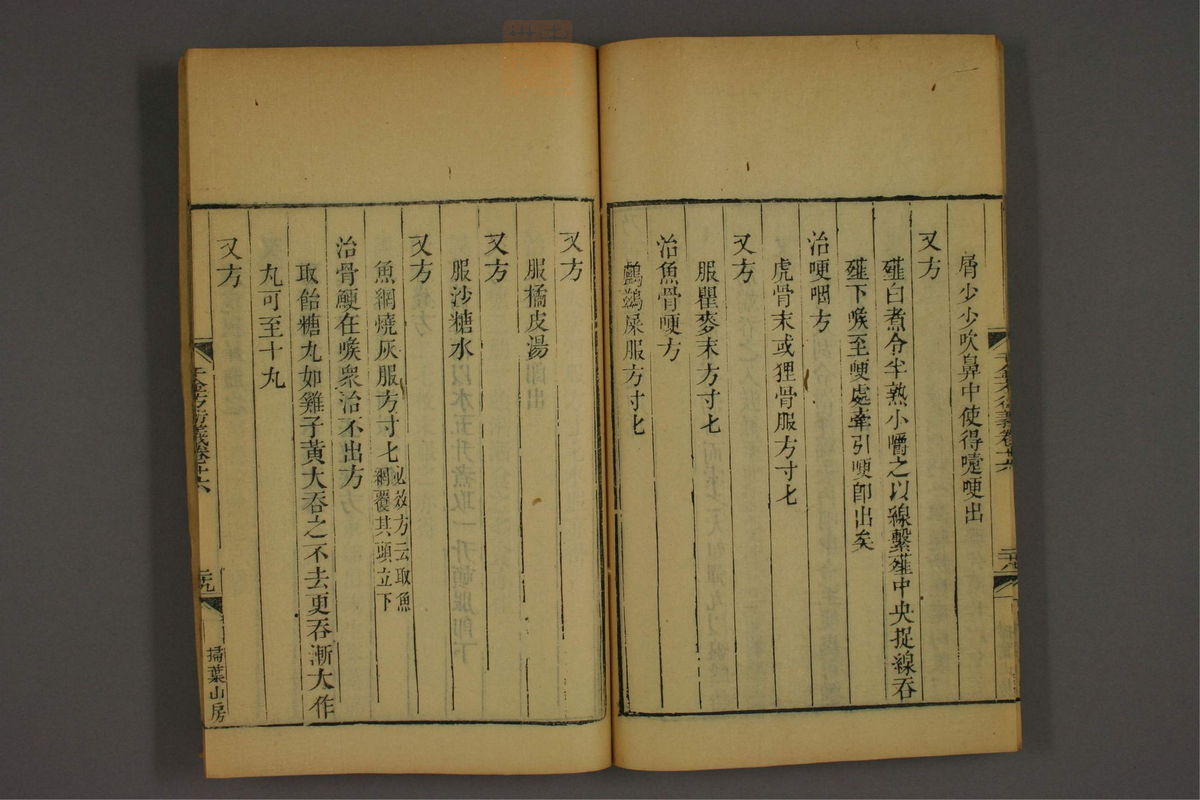 屑少少吹鼻中使得嚏哽出
又方
薤白煮令半熟小嚼之以線繫薤中央捉線吞
薤下喉至哽處牽引哽卽出矣
治哽咽方
虎骨末或狸骨服方寸匕
又方
服瞿麥末方寸匕
治魚骨哽方
鸕鷀屎服方寸匕
又方
服橘皮湯
又方
服沙糖水
又方
魚網燒灰服方寸匕必效方云取魚
網覆其頭立下
治骨鯁在喉衆治不出方
取飴糖丸如雞子黃大吞之不去更吞漸大作
丸可至十丸
又方
千金方衍義卷二十六
二十九
掃葉山房